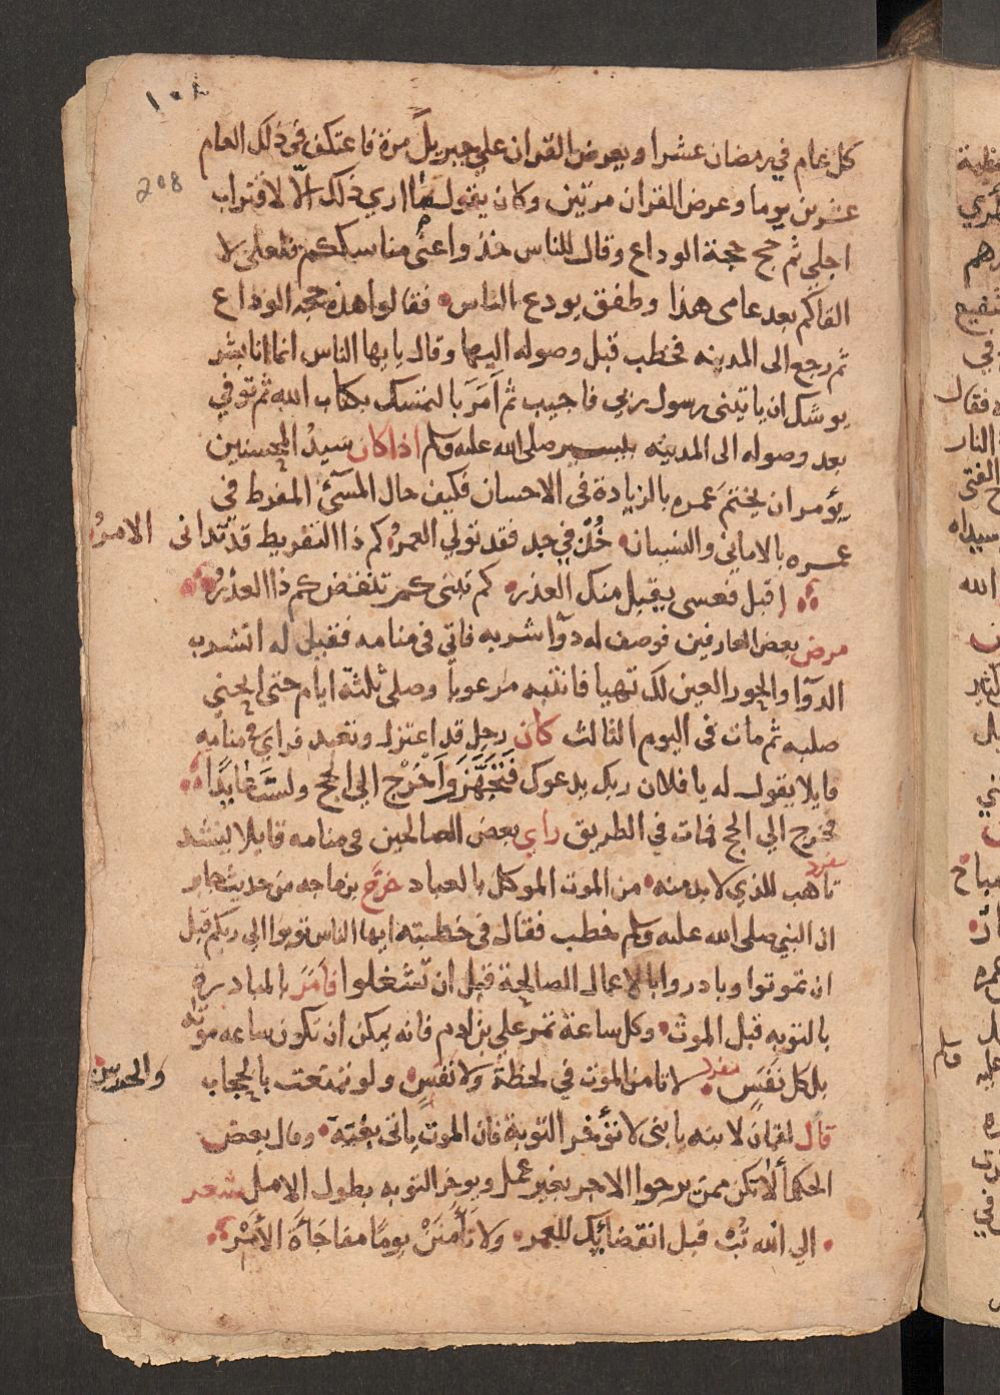 ١٠٨
208
كل عام في رمضان عشرا ويعرض القران علي جبريل مرة فاعتكف في ذلك العام
عشرين يوما وعرض القران مرتين وكان يقول ما اري ذلك الا لاقتراب
اجلي ثم حج حجة الوداع وقال للناس خذوا عني مناسككم فلعلي لا
القاكم بعد عامي هذا وطفق يودع الناس فقالوا هذه حجة الوداع
ثم رجع الى المدينه فخطب قبل وصوله اليها وقال يايها الناس انما انا بشر
يوشك ان ياتيني رسول ربي فاجيب ثم امَرَ بالتمسك بكتاب الله ثم توفي
بعد وصوله الى المدينه بيسير صلى الله عليه وسلم اذا كان سيدُ المحسنين
يؤمر ان يختم عمره بالزيادة في الاحسان فكيف حال المسئ المفرط في
عمره بالاماني والنسيان خُذْ في جد فقد تولي العمرُ كم ذا التفريط قد تدانى الامرُ
اقبل فعسى يقبل منك العذر كم تبنى كم تنقض كم ذا العذرُ
مرض بعض العارفين فوصف له دوآ شربه فاتي في منامه فقيل له اتشرب
الدوآ والحور العين لك تهيا فانتبه مرعوبا وصلى ثلثة ايام حتى انحني
صلبه ثم مات في اليوم الثالث كان رجل قد اعتزل وتعبد فراي في منامه
قايلا يقول له يا فلان ربك يدعوك فَتَجَهَّزَ وَاَخْرُجْ الي الحج ولستَ عايدًا
فخرج الي الحج فمات في الطريق راي بعض الصالحين في منامه قايلا ينشد
مفرد
تاهب للذي لا بد منه من الموت الموكل بالعباد خرّج بن ماجه من حديث جابر
ان النبي صلى الله عليه وسلم خطب فقال في خطبته ايها الناس توبوا الي ربكم قبل
ان تموتوا وبادروا بالاعمال الصالحة قبل ان تشغلوا فامَرَ بالمبادرة
بالتوبه قبل الموت وكل ساعة تمر علي بن ادم فانه يمكن ان تكون ساعه موته
بل كل نَفَسٍ مفرد لا تامن الموت في لحظةٍ ولا نفَسٍ ولو تمنعت بالحجاب والحرس
قال لقمان لابنه يا بنى لا تؤخر التوبة فان الموت ياتى بغتة وقال بعض
الحكما ألا تكن ممن يرجوا الاجر بغير عمل ويوخر التوبه بطول الامل شعر
الي الله تُبْ قبل انقضائِك للعمر ولا تَأْمَننْ يومًا مفاجَأةَ الأَمْرِ